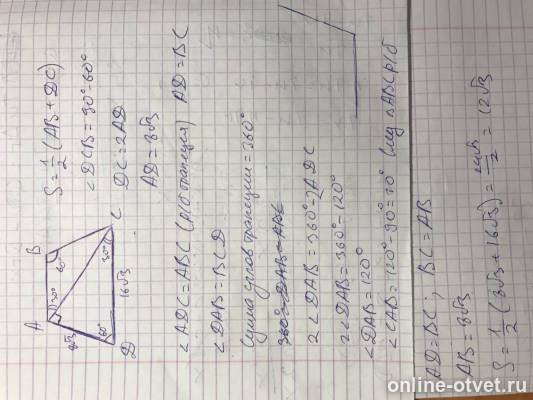 A
B
30°
60°
8√3
60°
30°
16√3
D
C
S = 1/2 (AB + DC)
∠DCB = 90° - 60°
DC = 2AD
AD = 8√3
∠ADC = ABC (р/б трапеция) AD = BC
∠DAB = BCD
Сумма углов трапеции = 360°
2∠DAB = 360° - 2ADC
2∠DAB = 360° - 120°
∠DAB = 120°
∠CAB = 120° - 90° = 30° (след △ABC р/б
AD = BC; BC = AB
AB = 8√3
S = 1/2 (8√3 + 16√3) = 24√3/2 = 12√3
online-otvet.ru